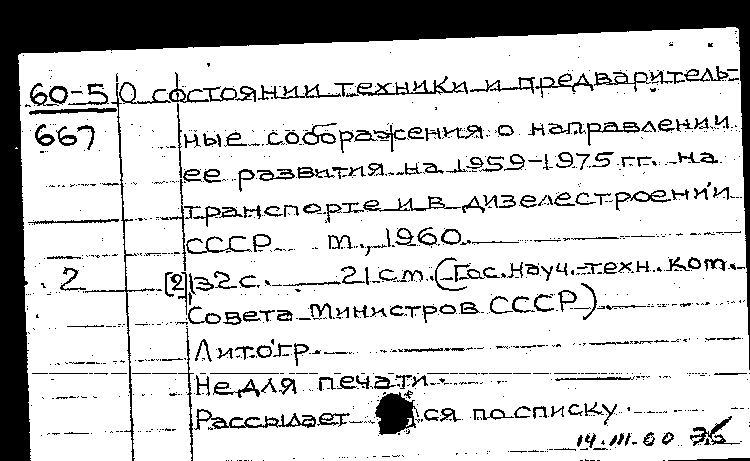 60-5 О состоянии техники и предваритель-
667 ные соображения о направлении
ее развития на 1959-1975 гг. на
транспорте и в дизелестроении
СССР М., 1960.
2 [2], 32 с. 21 см. (Гос. науч.-техн. ком.
Совета Министров СССР).
Литогр.
Не для печати.
Рассылается по списку.
14.III.60